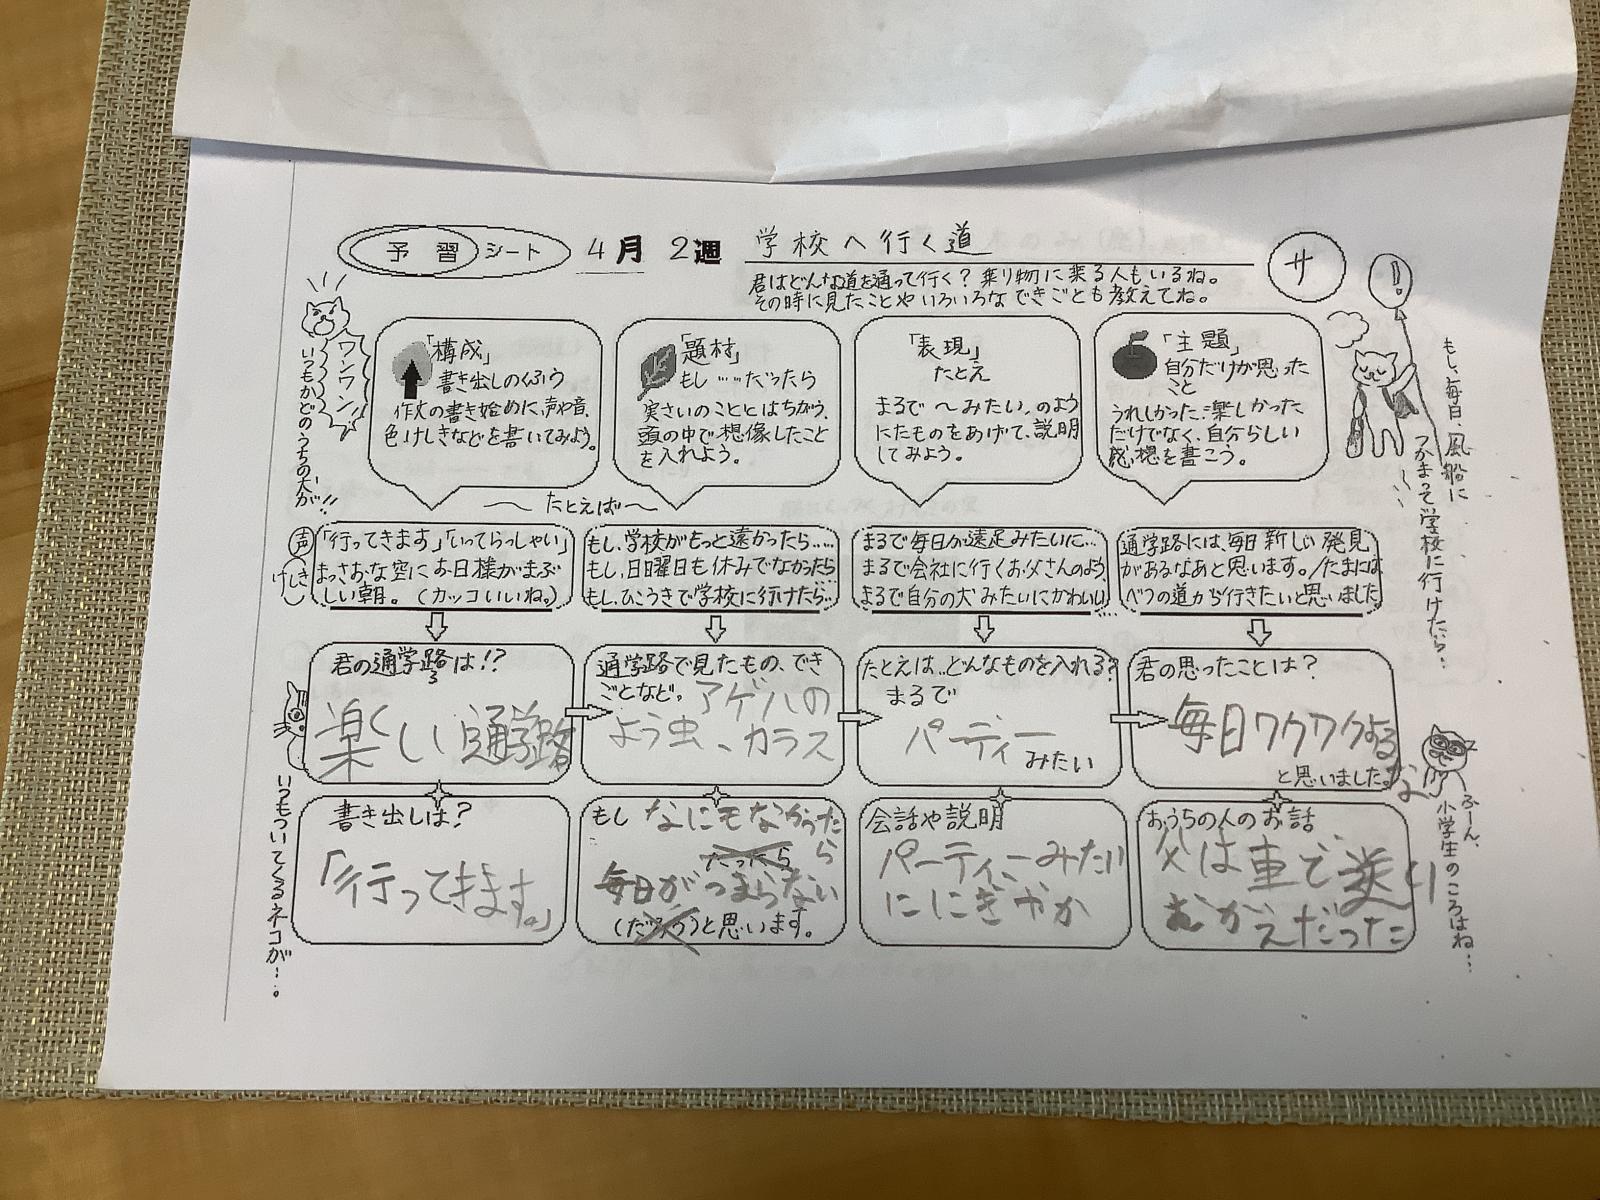 予習シート 4月 2週 学校へ行く道
サ
君はどんな道を通って行く？乗り物に乗る人もいるね。
その時に見たことやいろいろなできごとも教えてね。
「構成」
書き出しのくふう
作文の書き始めに、声や音、
色、けしきなどを書いてみよう。
「題材」
もし……だったら
実さいのこととはちがう、
頭の中で想像したこと
を入れよう。
「表現」
たとえ
まるで〜みたい、のよう
にたものをあげて、説明
してみよう。
「主題」
自分だけが思った
こと
うれしかった、楽しかった
だけでなく、自分らしい
感想を書こう。
ワンワン!
いつもかどのうちの犬が…!!
!
もし、毎日、風船に
つかまって学校に行けたら…
〜たとえば〜
声
けしき
「行ってきます」「いってらっしゃい」
まっさおな空にお日様がまぶ
しい朝。(カッコいいね。)
もし、学校がもっと遠かったら……
もし、日曜日も休みでなかったら…
もし、ひこうきで学校に行けたら…
まるで毎日が遠足みたいに…
まるで会社に行くお父さんのよう、
まるで自分の犬みたいにかわいい…
通学路には、毎日新しい発見
があるなあと思います。/たまには、
べつの道から行きたいと思いました。
君の通学路は!?
ろ
楽しい通学路
通学路で見たもの、でき
ごとなど。アゲハの
よう虫、カラス
たとえは…どんなものを入れる?
まるで
パーティー
みたい
君の思ったことは?
毎日ワクワクするな
と思いました。
書き出しは?
「行ってきます。」
もし なにもなかった
ら
毎日がつまらない
(だろう)と思います。
会話や説明
パーティーみたい
ににぎやか
おうちの人のお話
父は車で送り
むかえだった
いつもついてくるネコが…。
ふーん、
小学生のころはね…